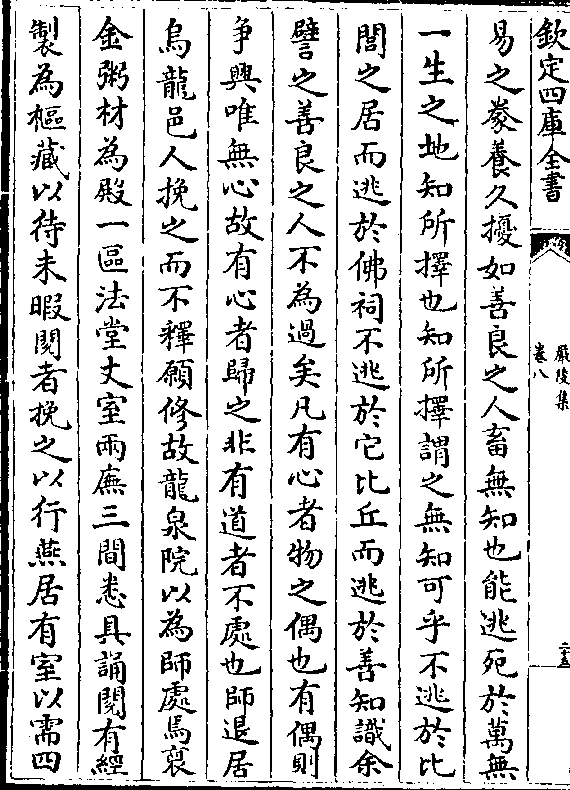 欽定四庫全書
嚴陵集
卷八
二十五
易之豢養久擾如善良之人畜無知也能逃死於萬無
一生之地知所擇也知所擇謂之無知可乎不逃於比
閭之居而逃於佛祠不逃於它比丘而逃於善知識余
譬之善良之人不為過矣凡有心者物之偶也有偶則
争興唯無心故有心者歸之非有道者不處也師退居
烏龍邑人挽之而不釋願修故龍泉院以為師處焉裒
金粥材為殿一區法堂丈室兩廡三間悉具誦閱有經
製為樞藏以待未暇閱者挽之以行燕居有室以需四